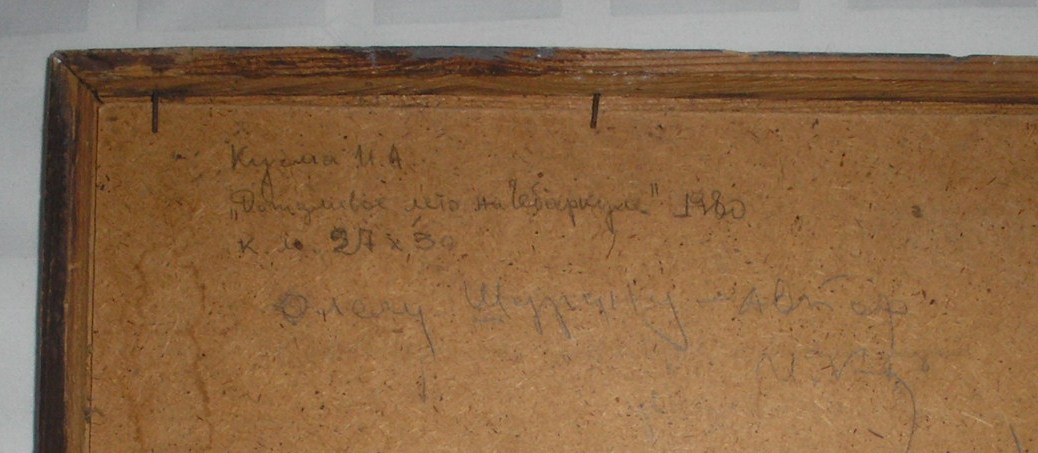 Кузьма И. А.
„Дождливое лето на Чебаркуле" 1980
к. м. 27 х 39
Олегу Шурану - автор